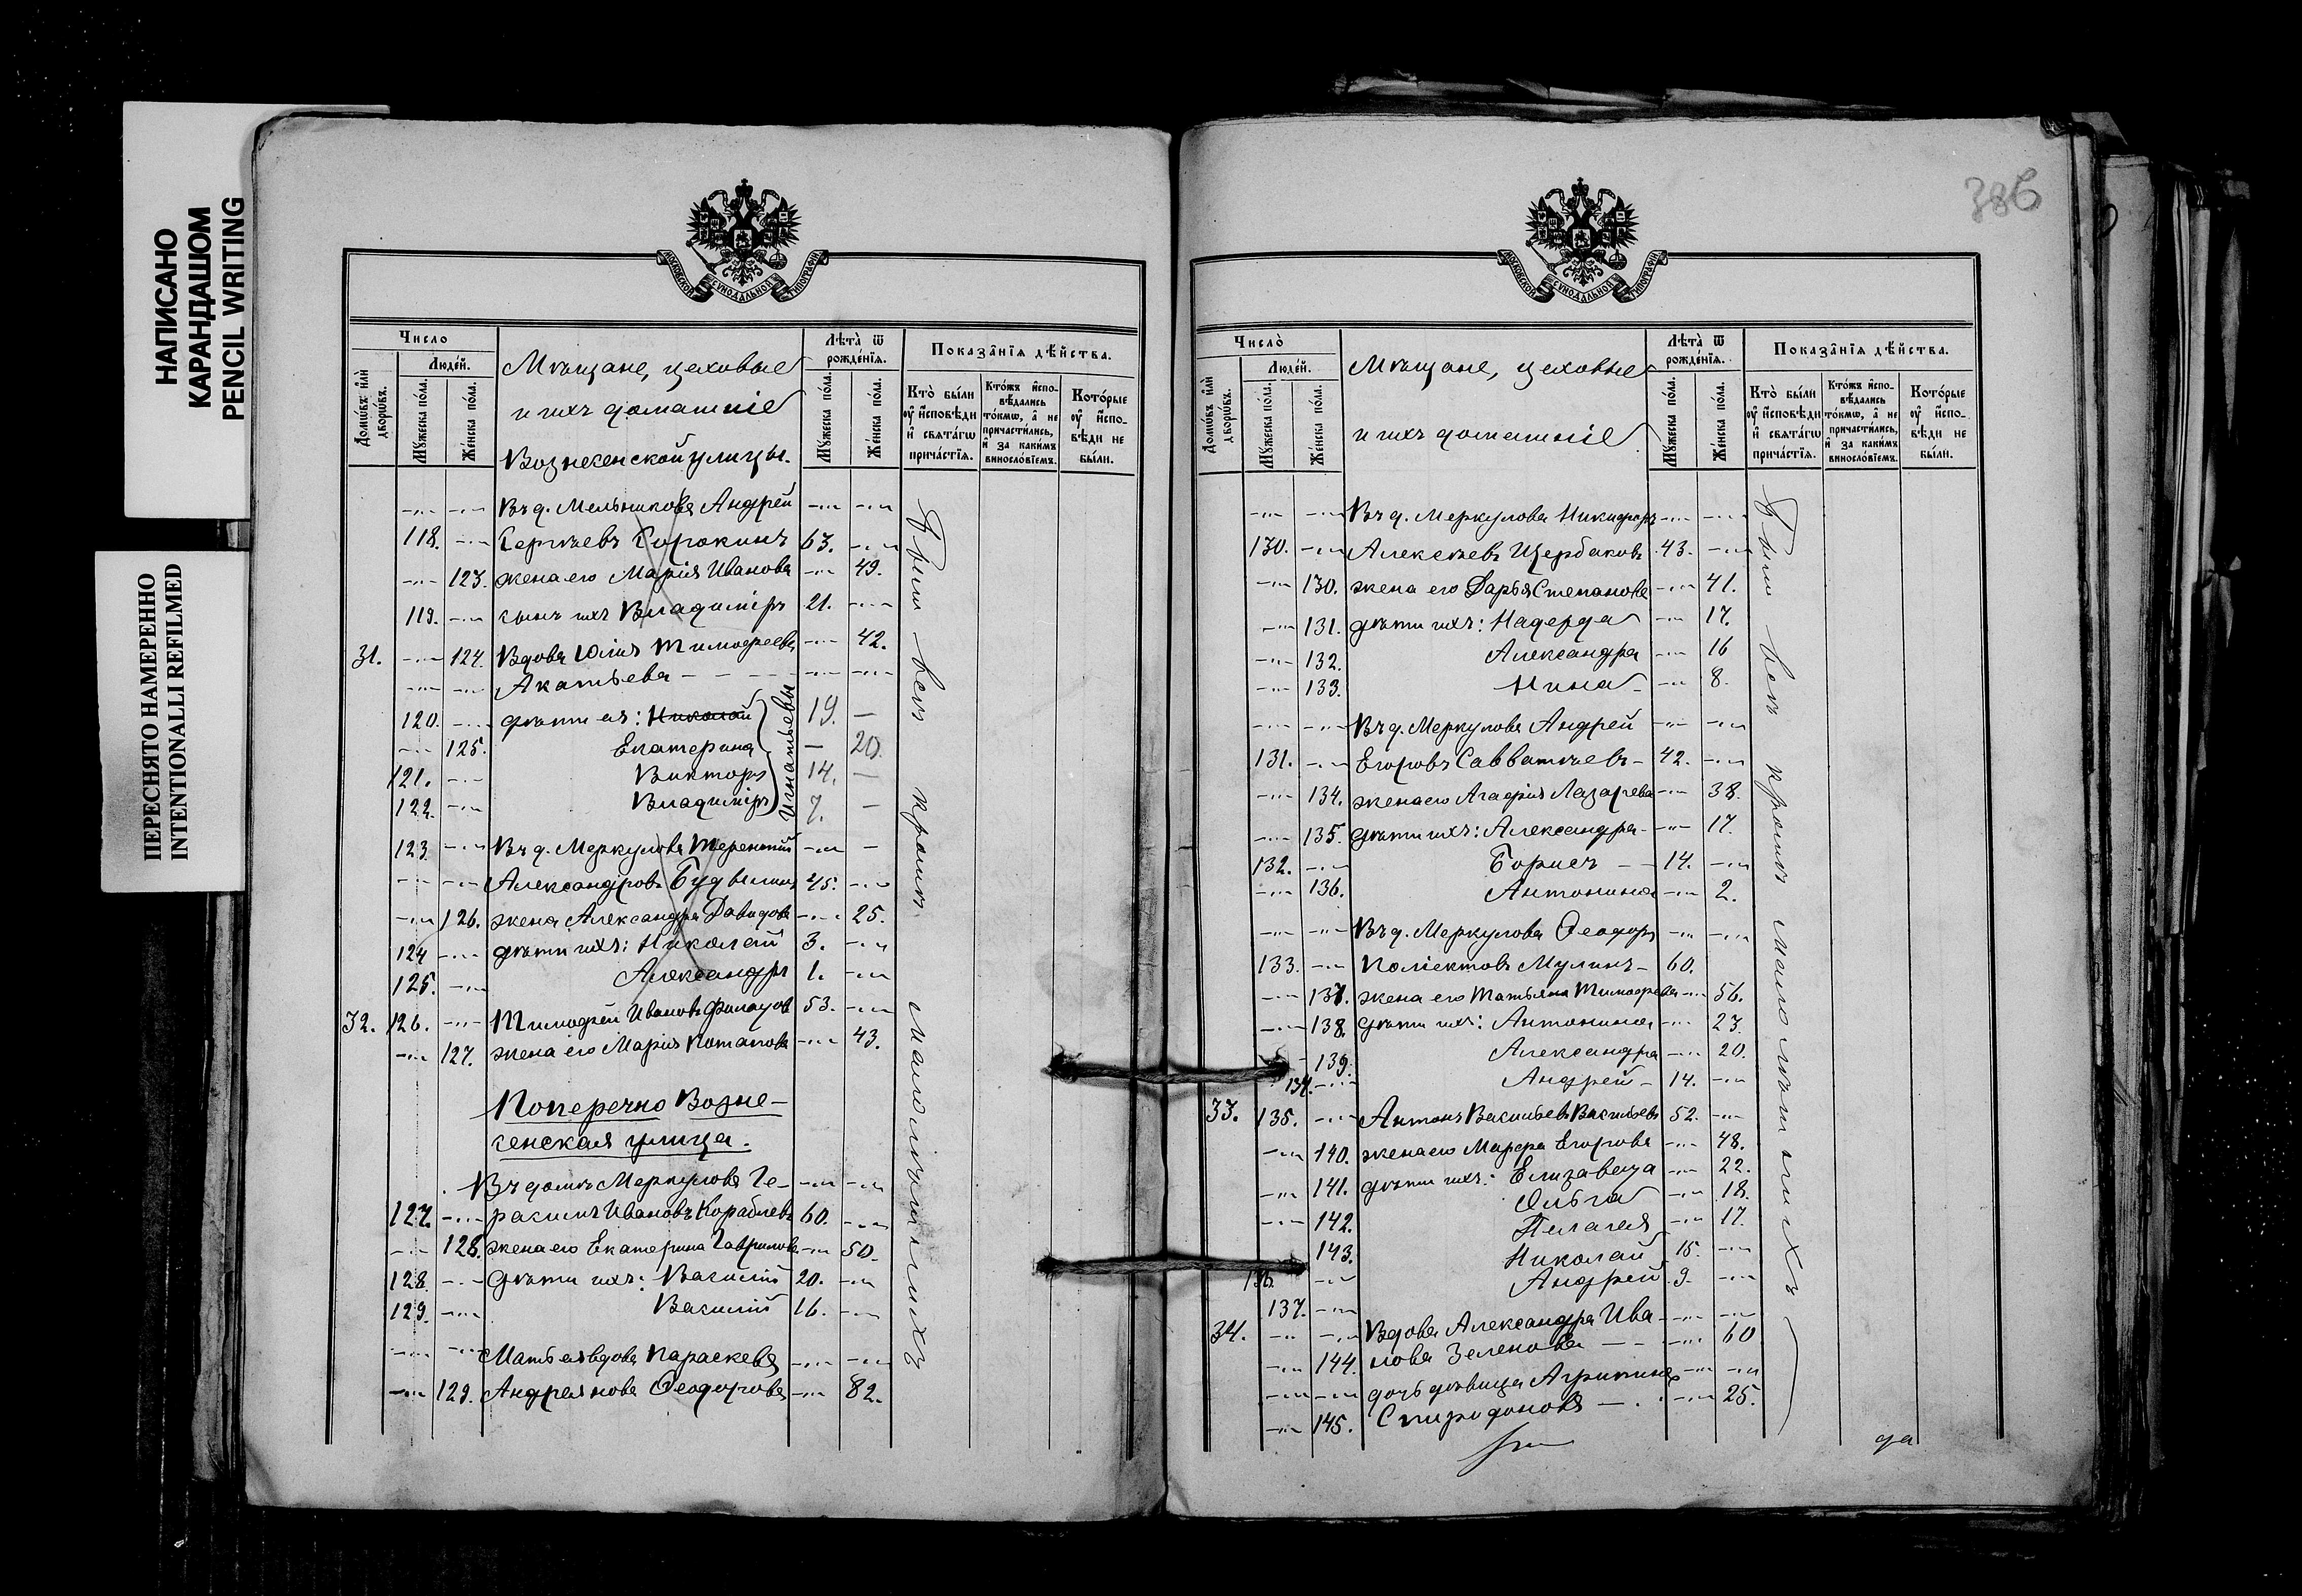 НАПИСАНО
КАРАНДАШОМ
PENCIL WRITING
ПЕРЕСНЯТО НАМЕРЕННО
INTENTIONALLI REFILMED
МОСКОВСКОЙ СѴНОДАЛЬНОЙ ТИПОГРАФІИ
Число
Домѡвъ и҆лѝ дворѡвъ.
Люде́й.
Мꙋ́жеска по́ла.
Же́нска по́ла.
Мѣщане, цеховые
и ихъ домашніе
Вознесенской улицы.
Лѣта̀ ѿ рожде́нїѧ.
Мꙋ́жеска по́ла.
Же́нска по́ла.
Показа̑нїѧ дѣ́йства.
Кто̀ бы́ли ᲂу҆ и҆́споⷡ҇ѣди и҆ свѧта́гѡ прича́стїѧ.
Кто́жъ и҆спо- вѣ́дались то́кмѡ, а҆ не причасти́лись, и҆ за каки́мъ виносло́вїемъ.
Кото́рые ᲂу҆ и҆́спо- вѣди не бы́ли.
Въ д. Мельникова Андрей
118. Сергѣевъ Сорокинъ 63.
123. жена его Марія Иванова 49.
119. сынъ ихъ Владиміръ 21.
31. 124. Вдова Юлія Тимофеева 42.
Акатьева
120. дѣти ея: Николай 19.
125. Екатерина 20
121. Викторъ 14.
122. Владиміръ 7.
Игнатьевы
123. Въ д. Меркулова Терентій
Александровъ Будылинъ 45.
126. жена Александра Давидова 25.
124 дѣти ихъ: Николай 3.
125. Александръ 1.
32. 126. Тимофей Ивановъ 53.
127. жена его Марія Потапова 43.
Поперечно Возне-
сенская улица.
Въ домѣ Меркулова Ге-
127. расимъ Ивановъ Кораблевъ 60.
128. жена его Екатерина Гаврилова 50.
128. дѣти ихъ: Василій 20.
129. Василій 16.
Мать его вдова Параскева
129. Андреянова Ѳеодорова 82.
Были всѣ кромѣ малолѣтнихъ
386
МОСКОВСКОЙ СѴНОДАЛЬНОЙ ТИПОГРАФІИ
Число̀
Домѡвъ и҆лѝ дворѡвъ.
Люде́й.
Мꙋ́жеска по́ла.
Же́нска по́ла.
Мѣщане, цеховые
и ихъ домашніе
Лѣта̀ ѿ рожде́нїѧ.
Мꙋ́жеска по́ла.
Же́нска по́ла.
Показа̑нїѧ дѣ́йства.
Кто̀ бы́ли ᲂу҆ и҆́споⷡ҇ѣди и҆ свѧта́гѡ прича́стїѧ.
Кто́жъ и҆спо- вѣ́дались то́кмѡ, а҆ не причасти́лись, и҆ за каки́мъ виносло́вїемъ.
Кото́рые ᲂу҆ и҆́спо- вѣди не бы́ли.
Въ д. Меркулова Никифоръ
130. Алексѣевъ Щербаковъ 43.
130. жена его Дарья Степанова 41.
131. дѣти ихъ: Надежда 17.
132. Александра 16
133. Нина 8.
Въ д. Меркулова Андрей
131. Егоровъ Савватѣевъ 42.
134. жена его Агафія Лазарева 38.
135. дѣти ихъ: Александра 17.
132. Борисъ 14.
136. Антонина 2.
Въ д. Меркулова Ѳеодоръ
133. Поліектовъ Мулинъ 60.
137. жена его Татьяна Тимофеева 56.
138. дѣти ихъ: Антонина 23.
139. Александра 20.
134. Андрей 14.
33. 135. Антонъ Васильевъ Васильевъ 52.
140. жена его Марфа Егорова 48.
141. дѣти ихъ: Елизавета 22.
Ольга 18.
142. Пелагея 17.
143. Николай 15.
136. Андрей 9.
137.
34. Вдова Александра Ива-
144. нова Зеленова 60
дочь дѣвица Агрипина
145. Спиридонова 25.
Были всѣ кромѣ малолѣтнихъ
да